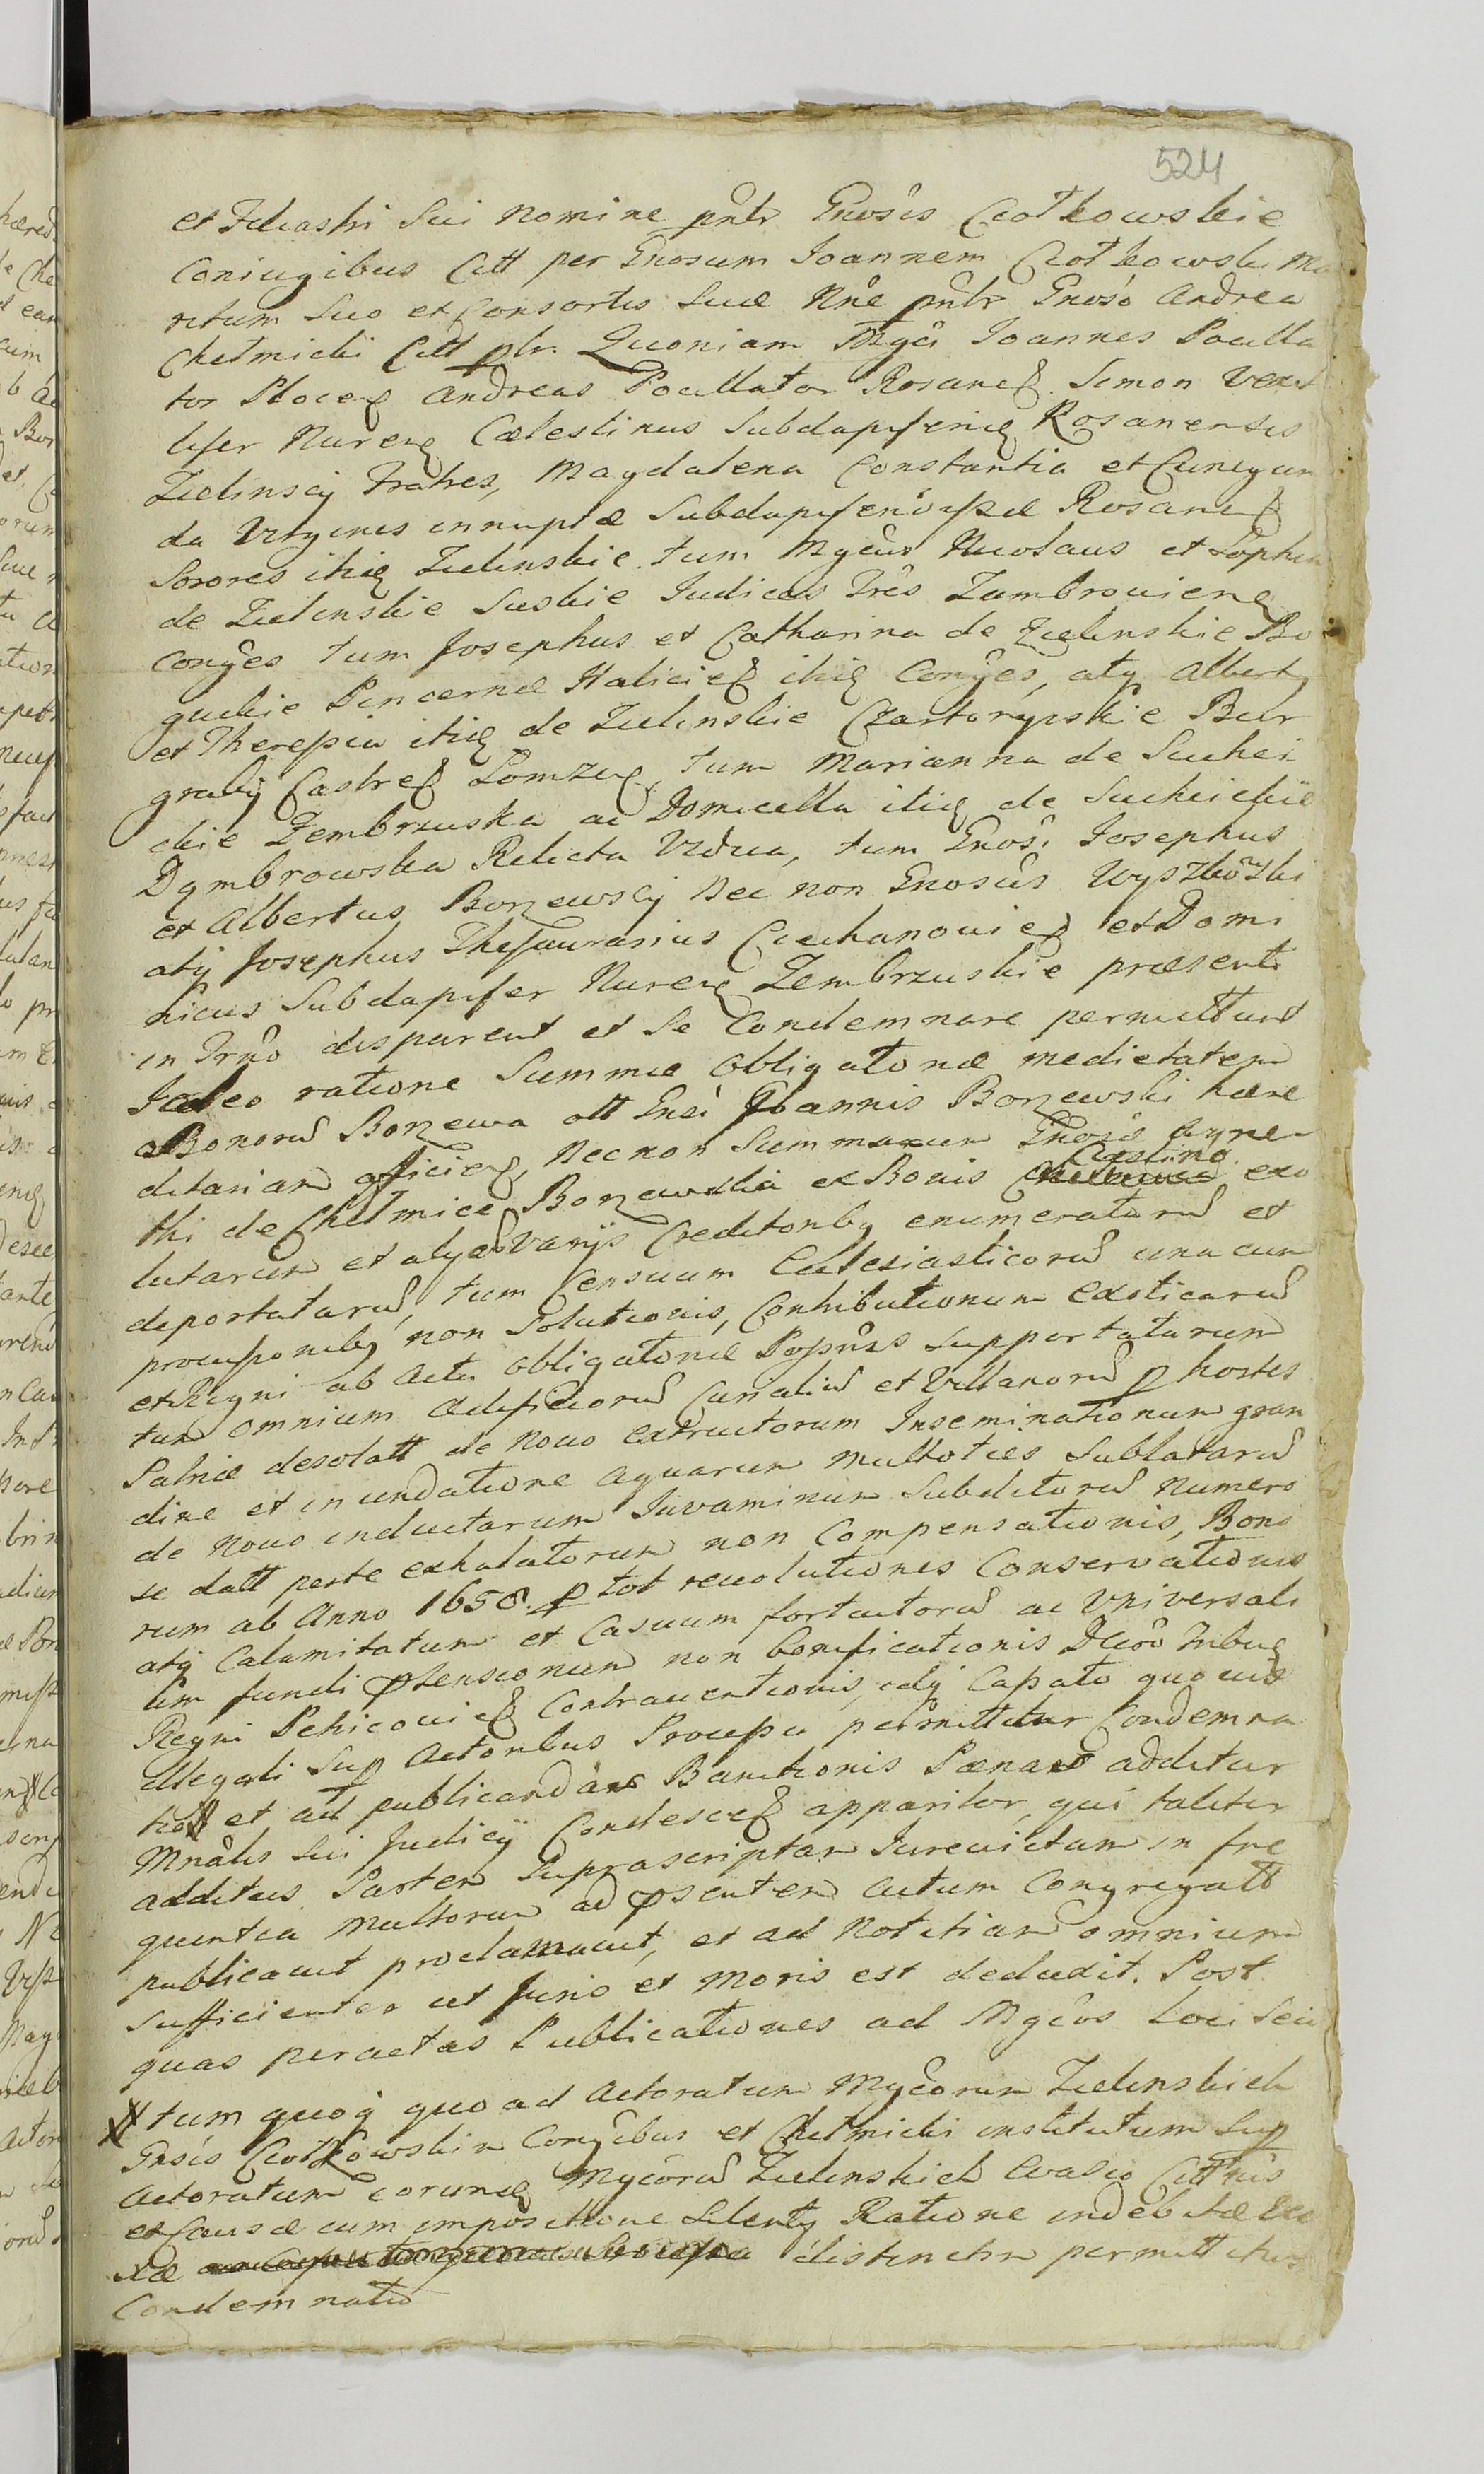 524
et Filiastri Sui nomine pntr Gnosis Ciotkowskie
Coniugibus Citt per Gnosum Joannem Ciotkowski Ma
ritum Suo et Consortis Suæ Nne pntr Gnoso Andrea
Chełmicki Citt ptr. Quoniam Mgci Joannes Pocilla
tor Plocen Andreas Pocillator Rosanen Simon Vexil
lifer Nuren Cælestinus Subdapiferid Rosanensis
Zielinscÿ Fratres, Magdalena Constantia et Cunegun
da Virgines innuptæ Subdapiferidissæ Rosanen
Sorores itid Zielinskie tum Mgcus Nicolaus et Sophia
de Zielinskie Suskie Judices Tres Zambrovien
Conges tum Josephus et Catharina de Zielinskie Bo
guckie Pincernæ Halicien itid Conges, atq Albertg
et Theressia itid de Zielinskie Czartoryiskie Bur
grabÿ Castren Lomzen, tum Marianna de Suchci
ckie Zembrzuska ac Domicella itid de Suchcickie
Dąmbrowska Relicta Vidua, tum Gnosi Josephus
et Albertus Bonzewscÿ Nec non Gnosus Wyszkowski
atq Josephus Thesaurarius Ciechanovien et Domi
nicus Subdapifer Nuren Zembrzuskie præsenti
in Trno disparent et Se Condemnare permittunt
Ideo ratione Summæ obligatoriæ medietatem
Bonorum Bonzewa olt Gnsi Joannis Bonzewski hære
ditariam afficien, Necnon Summarum Gnosis Agne
thi de Chełmice Bonzewska ex Bonis Chelmica Cieslino exo
lutarum et alÿs Varÿs Creditoribg enumeratarum et
deportatarum, tum Censuum Ecclesiasticorum una cum
provisionibg non Solutionis, Contributionum Exoticarum
et Regni ab Actu obligatoriæ Possnis Supportatarum
tum omnium ædificiorum Curialium et Villanorum p hostes
Patriæ desolatt de Novo extructorum Inseminationum gran
dine et inundatione aquarum multoties Sublatarum
de Novo inductarum Iuvaminum Subditorum Numero
se datt peste exhalatorum non Compensationis, Bono
rum ab Anno 1658. p tot revolutiones Conservationis
atq Calamitatum et Casuum fortuitorum ac Universali
um fundi ptensionum non bonificationis Dcro Tribus
Regni Petricovien Contraventionis, alÿ Cassato quovis
illegali Sup Actoribus Processu permittitur Condemna
tio X et ad publicandam Bannitionis Pænam additur
Mnalis Sui Judicÿ Condescen apparitor, qui taliter
additus Partem Suprascriptam Jurevictam in fre
quentia Multorum ad psentem actum Congregatt
publicavit proclamavit, et ad Notitiam omnium
sufficienter ut Juris et Moris est deduxit. Post
quas peractas Publicationes ad Mgcos Loci Seu
X tum quoq quo ad Actoratum Mgcorum Zielinskich
Gnsis Ciotkowskim Congibus et Chełmicki institutum Sup
Actoratum eorund Mgcorum Zielinskich Evasio Cittnis
et Causæ cum impositione Silentÿ Ratione indebitæ
distinctim permittitur
Condemnatio